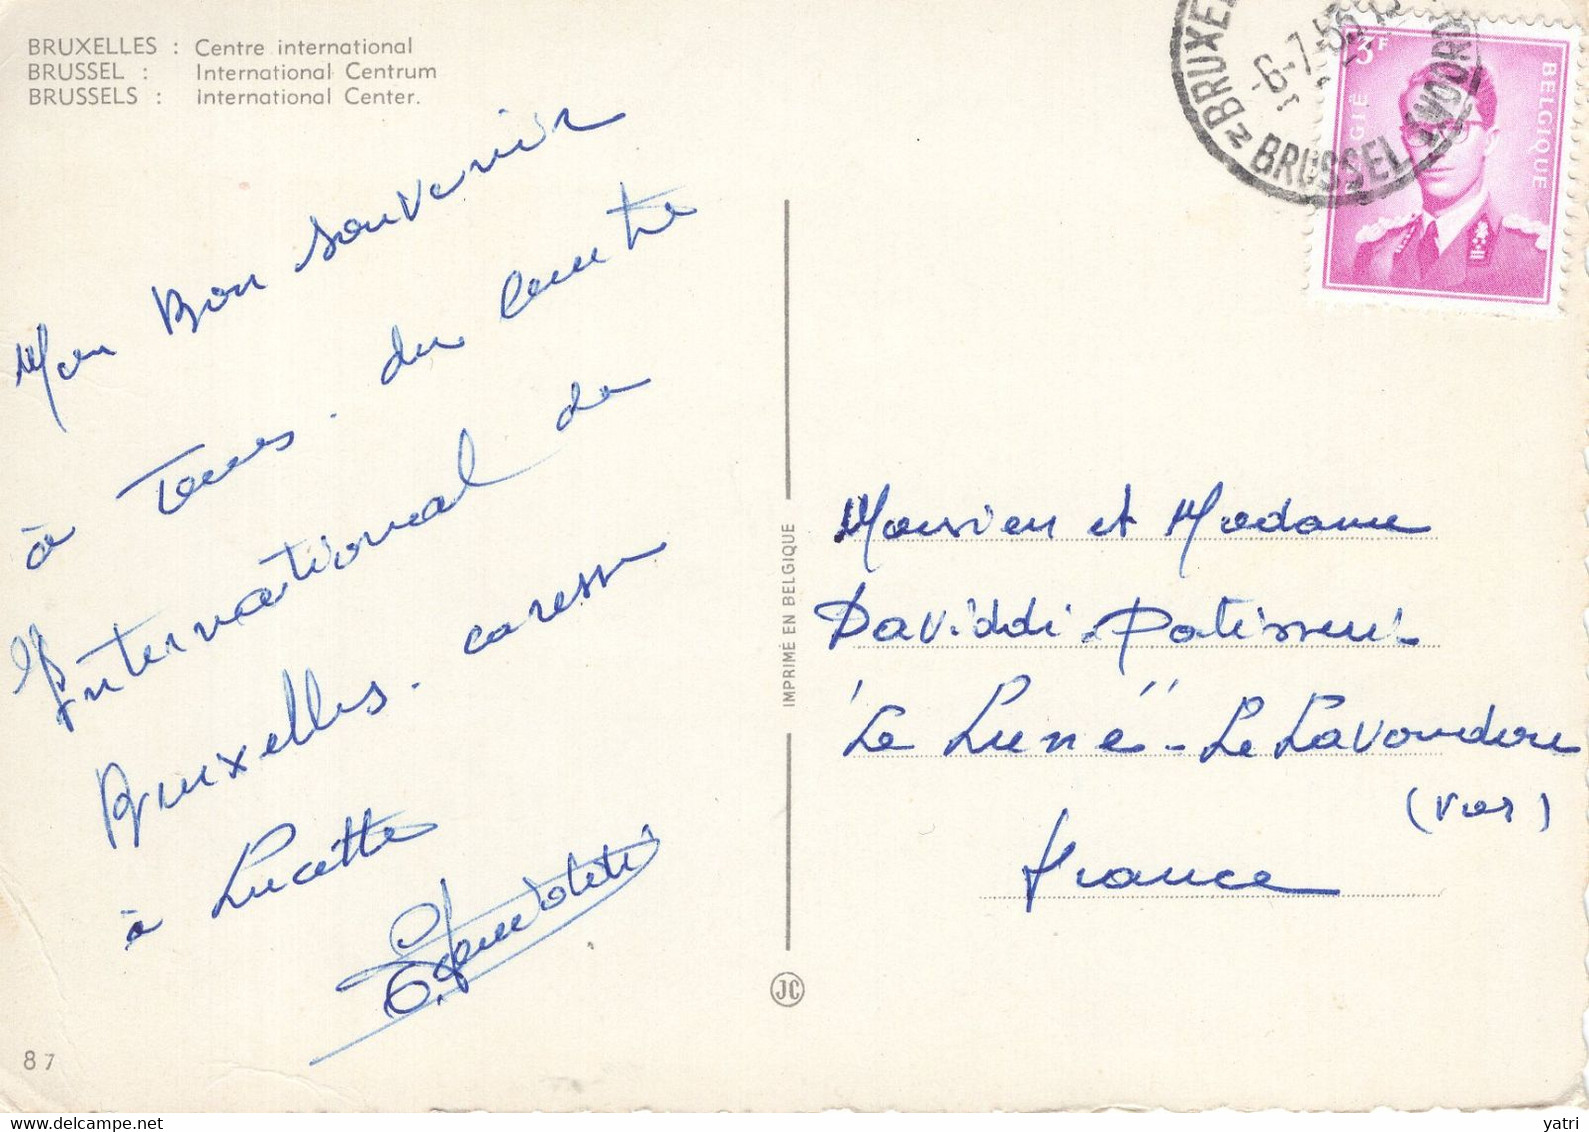 BRUXELLES : Centre international
BRUSSEL : International Centrum
BRUSSELS : International Center.
Mon Bon souvenir
à tous. du Centre
International de
Bruxelles. caresse
à Lucette
87
IMPRIMÉ EN BELGIQUE
JC
BRUXEL
-6-7-
BRUSSEL (NOORD
3F
BELGIQUE
GIË
Monsieur et Madame
Daviddi. Patisserie
"Le Luné" - Le Lavandou
(Var)
France
delcampe.net
yatri